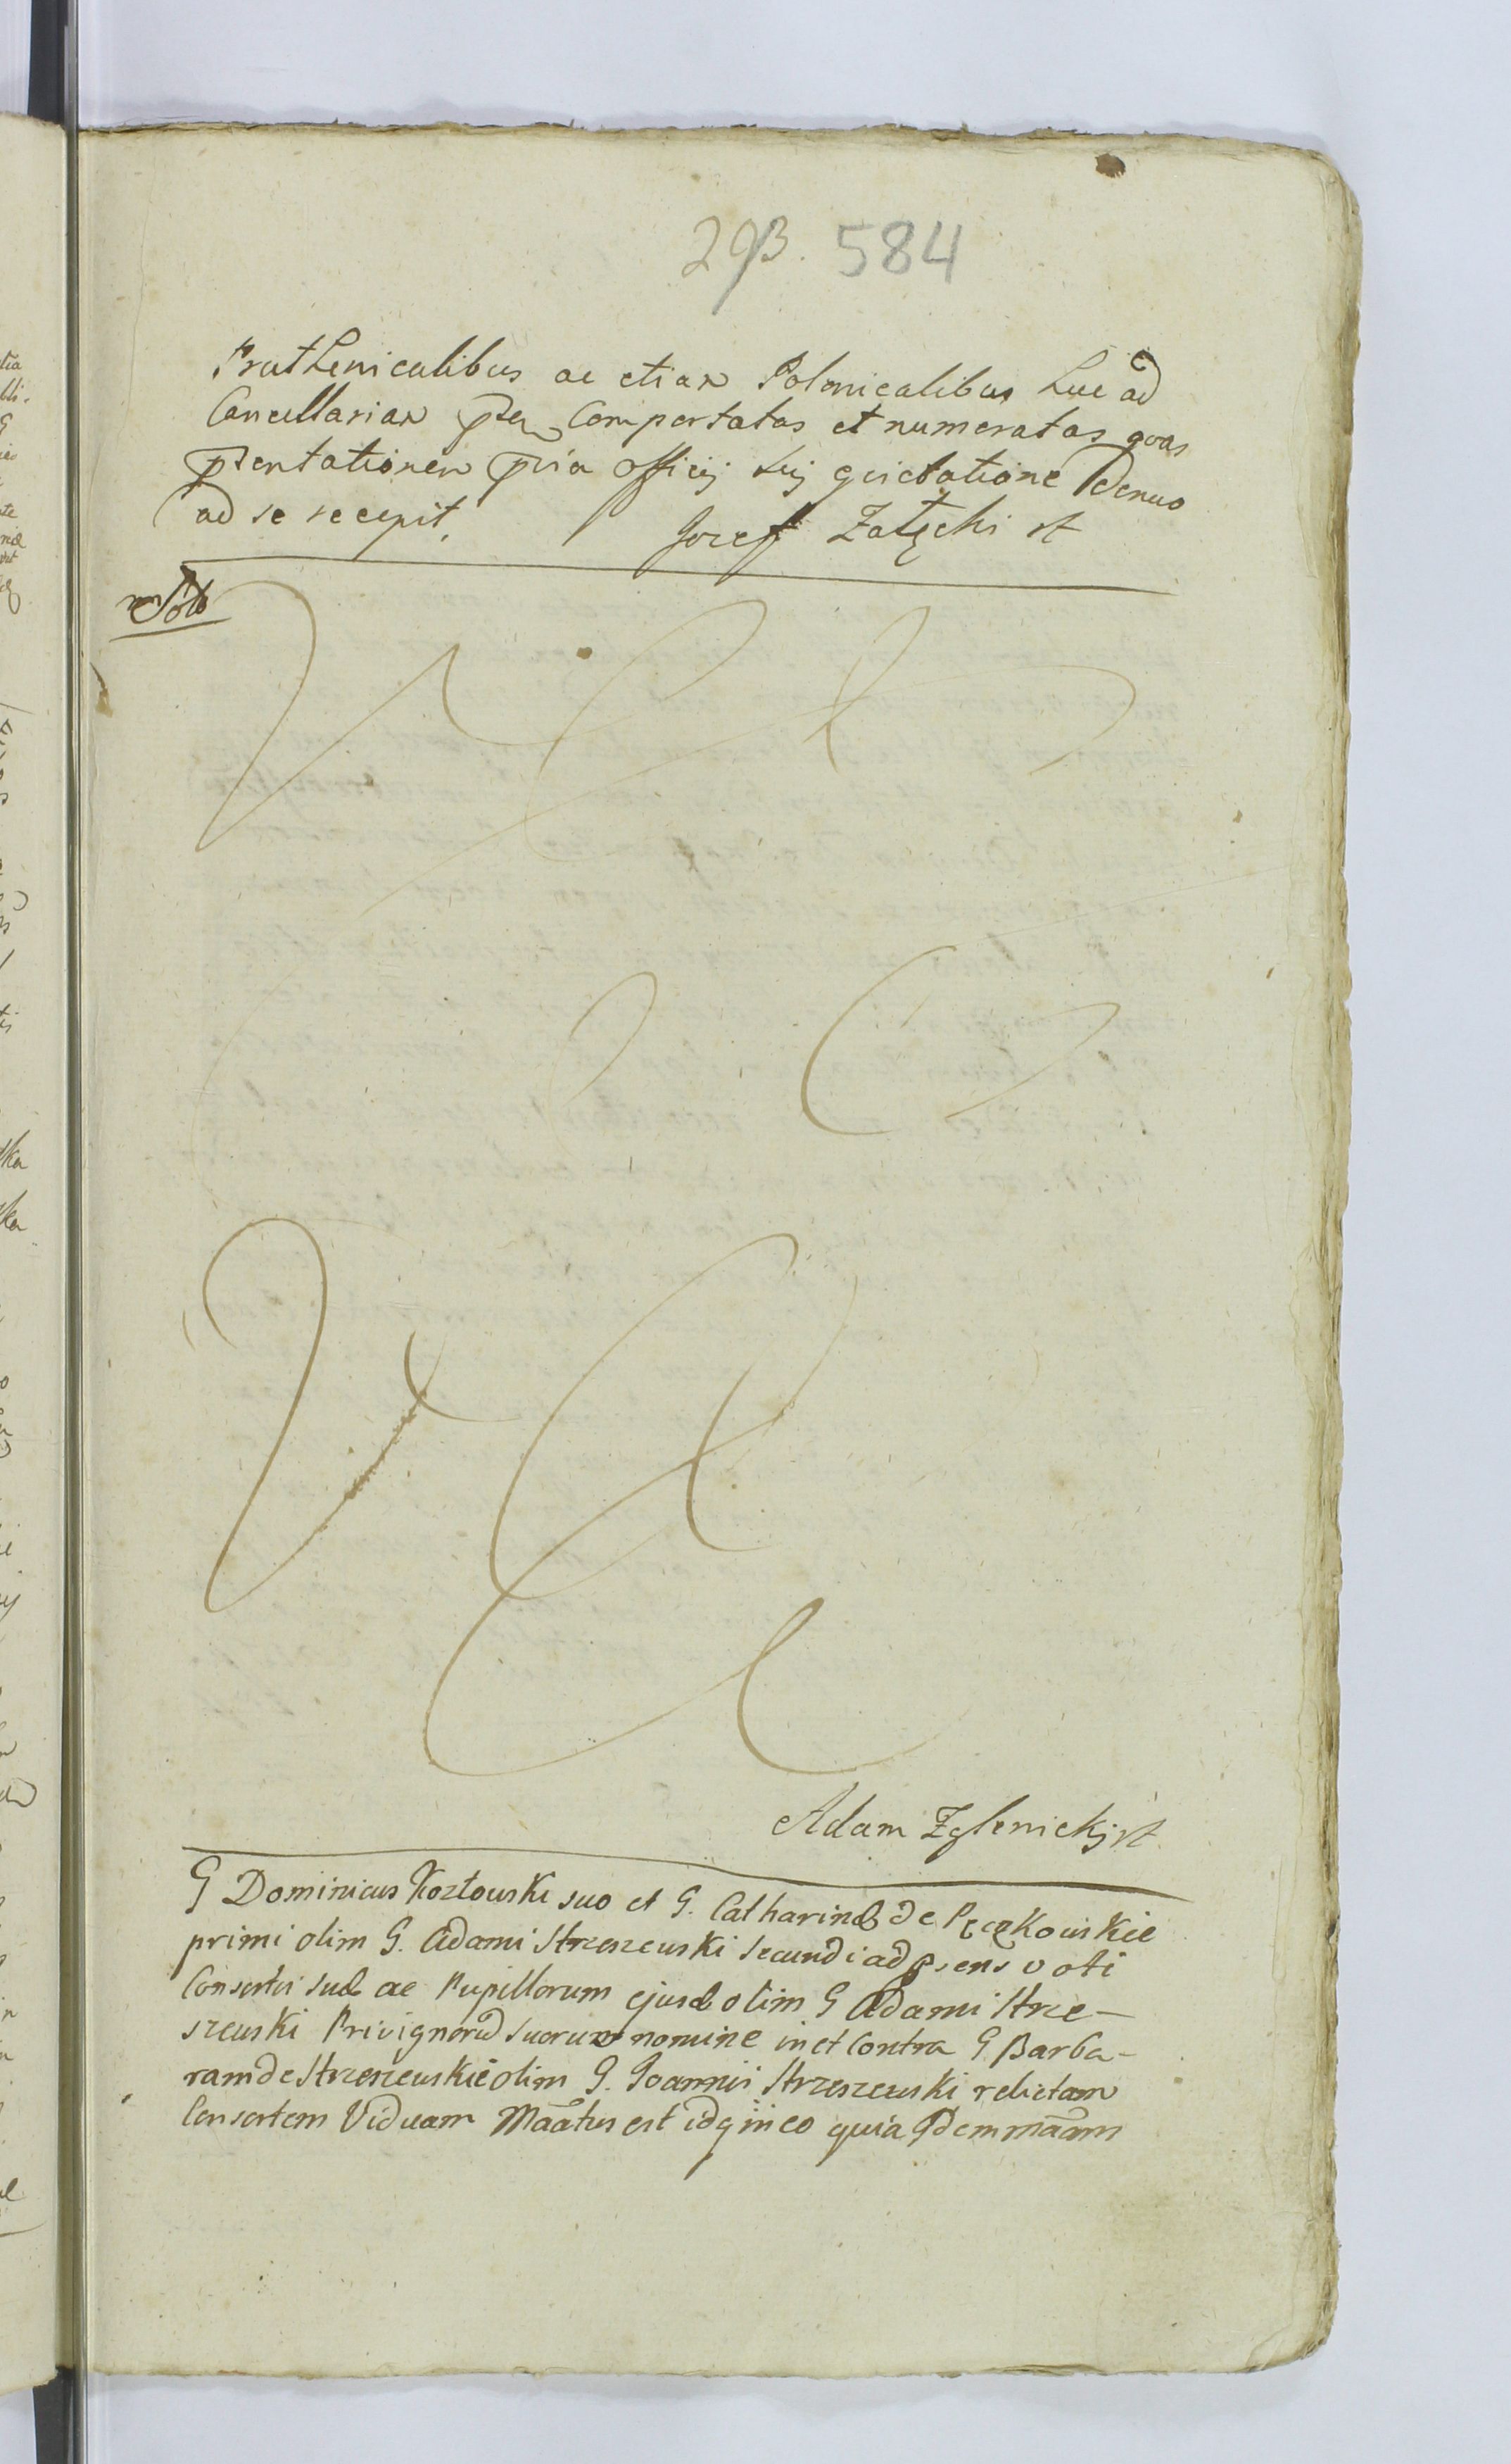 293. 584
Pruthenicalibus ac etiam Polonicalibus huc ad
Cancellariam pntem Comportatas et numeratas quas
pntentationem pvia officij sui quietatione denuo
ad se recepit.
Jozef Załęcki rt
Adam Zglenickj rt
G Dominicus Kozłouski suo et G. Catharinæ de Pęczkowskie
primi olim G. Adami Strzeszeuski secundi ad psens voti
Consortis suæ ac Pupillorum ejusd olim G Adami Strze-
szeuski Privignorū suorum nomine in et Contra G. Barba-
ram de Strzeszeuskie olim G. Joannis Strzeszeuski relictam
Consortem Viduam Māātus est idq in eo quia Gdem māām